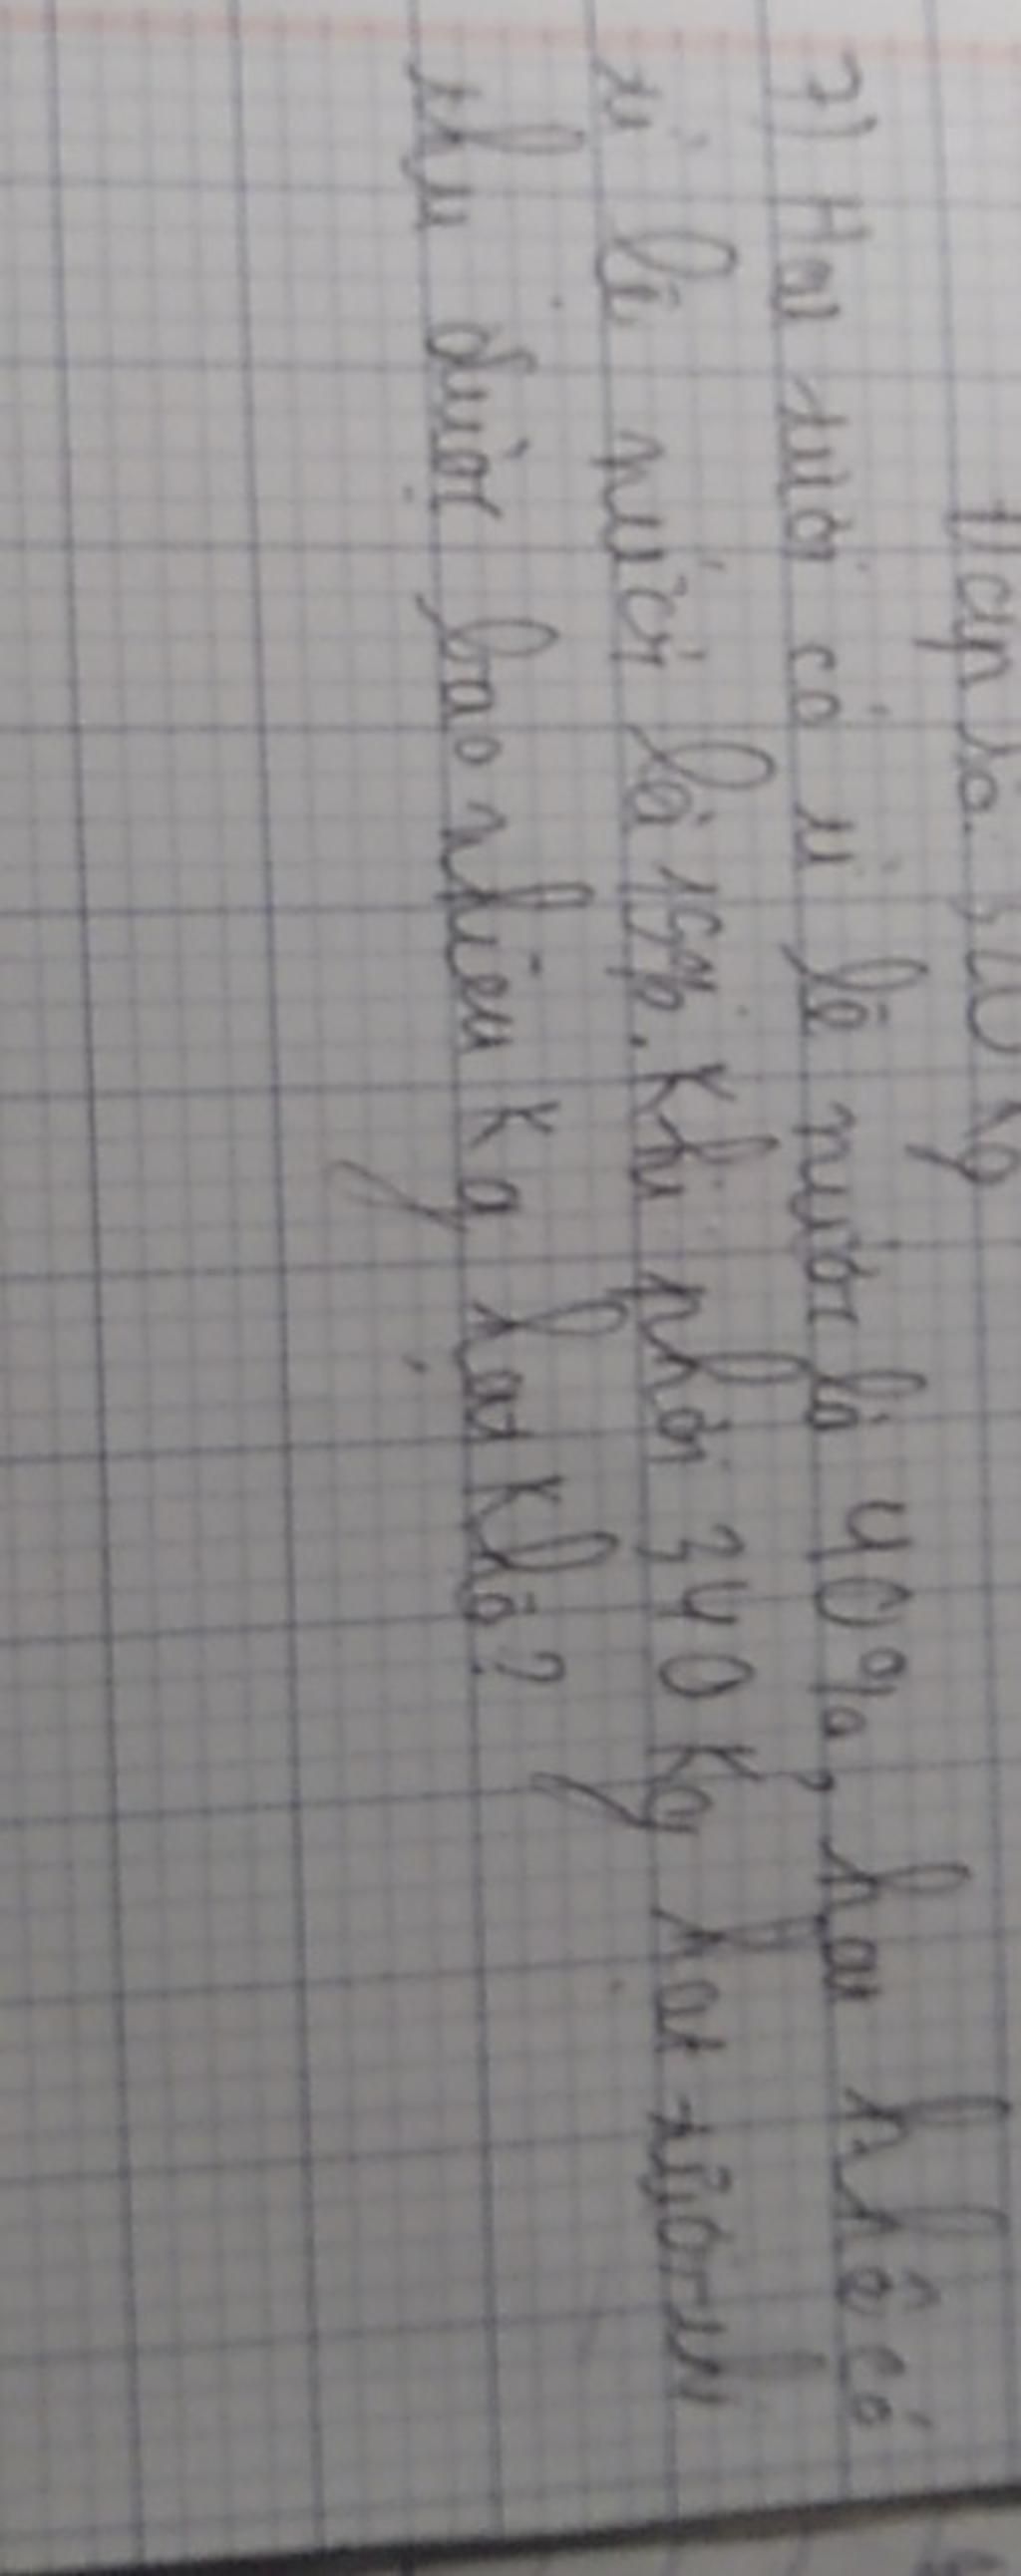 Đáp số: 320 kg
7) Hạt tươi có tỉ lệ nước là 40%, hạt khô có
tỉ lệ nước là 15%. Khi phơi 340 kg hạt tươi thì
thu được bao nhiêu kg hạt khô?